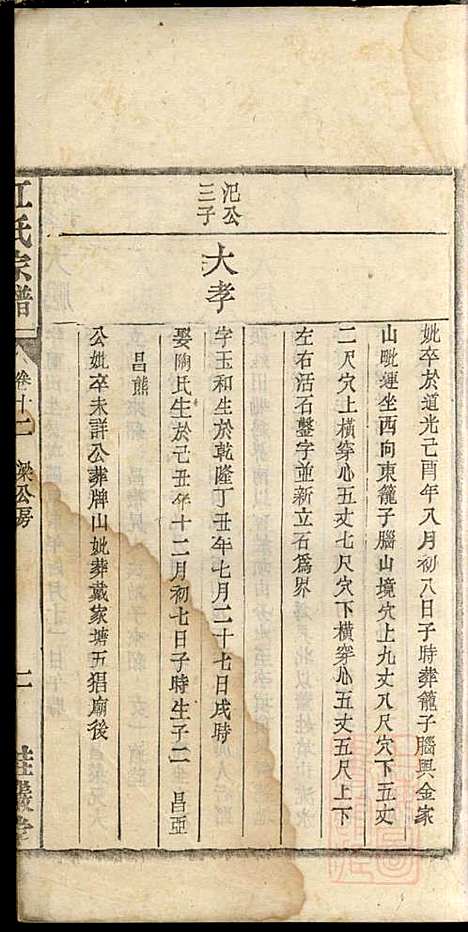 妣卒於道光己酉年八月初八日子時葬籠子腦與金家
山毗連坐西向東籠子腦山境穴上九丈八尺穴下五丈
二尺穴上橫穿心五丈七尺穴下橫穿心五丈五尺上下
左右活石鑿字並新立石為界
汜公
三子
大孝
字玉和生於乾隆丁丑年七月二十七日戌時
娶陶氏生於己丑年十二月初七日子時生子二　昌亞
昌熊
公妣卒未詳公葬牌山妣葬戴家塘五猖廟後
江氏宗譜
卷十二
梁公房
二